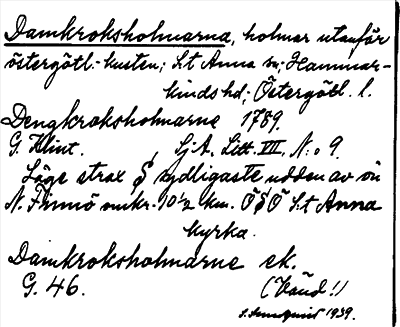 Damkroksholmarna, holmar utanför
östergötl.-kusten; S:t Anna sn; Hammar-
kinds hd; Östergötl. l.
Dengkroksholmarne 1789.
G. Klint. Sj.A. Litt. VII, N:o 9.
Läge strax S sydligaste udden av ön
N. Finnö omkr. 10 1/2 km. ÖSÖ S:t Anna
kyrka.
Damkroksholmarne ek.
G. 46. (Känd!)
1939.